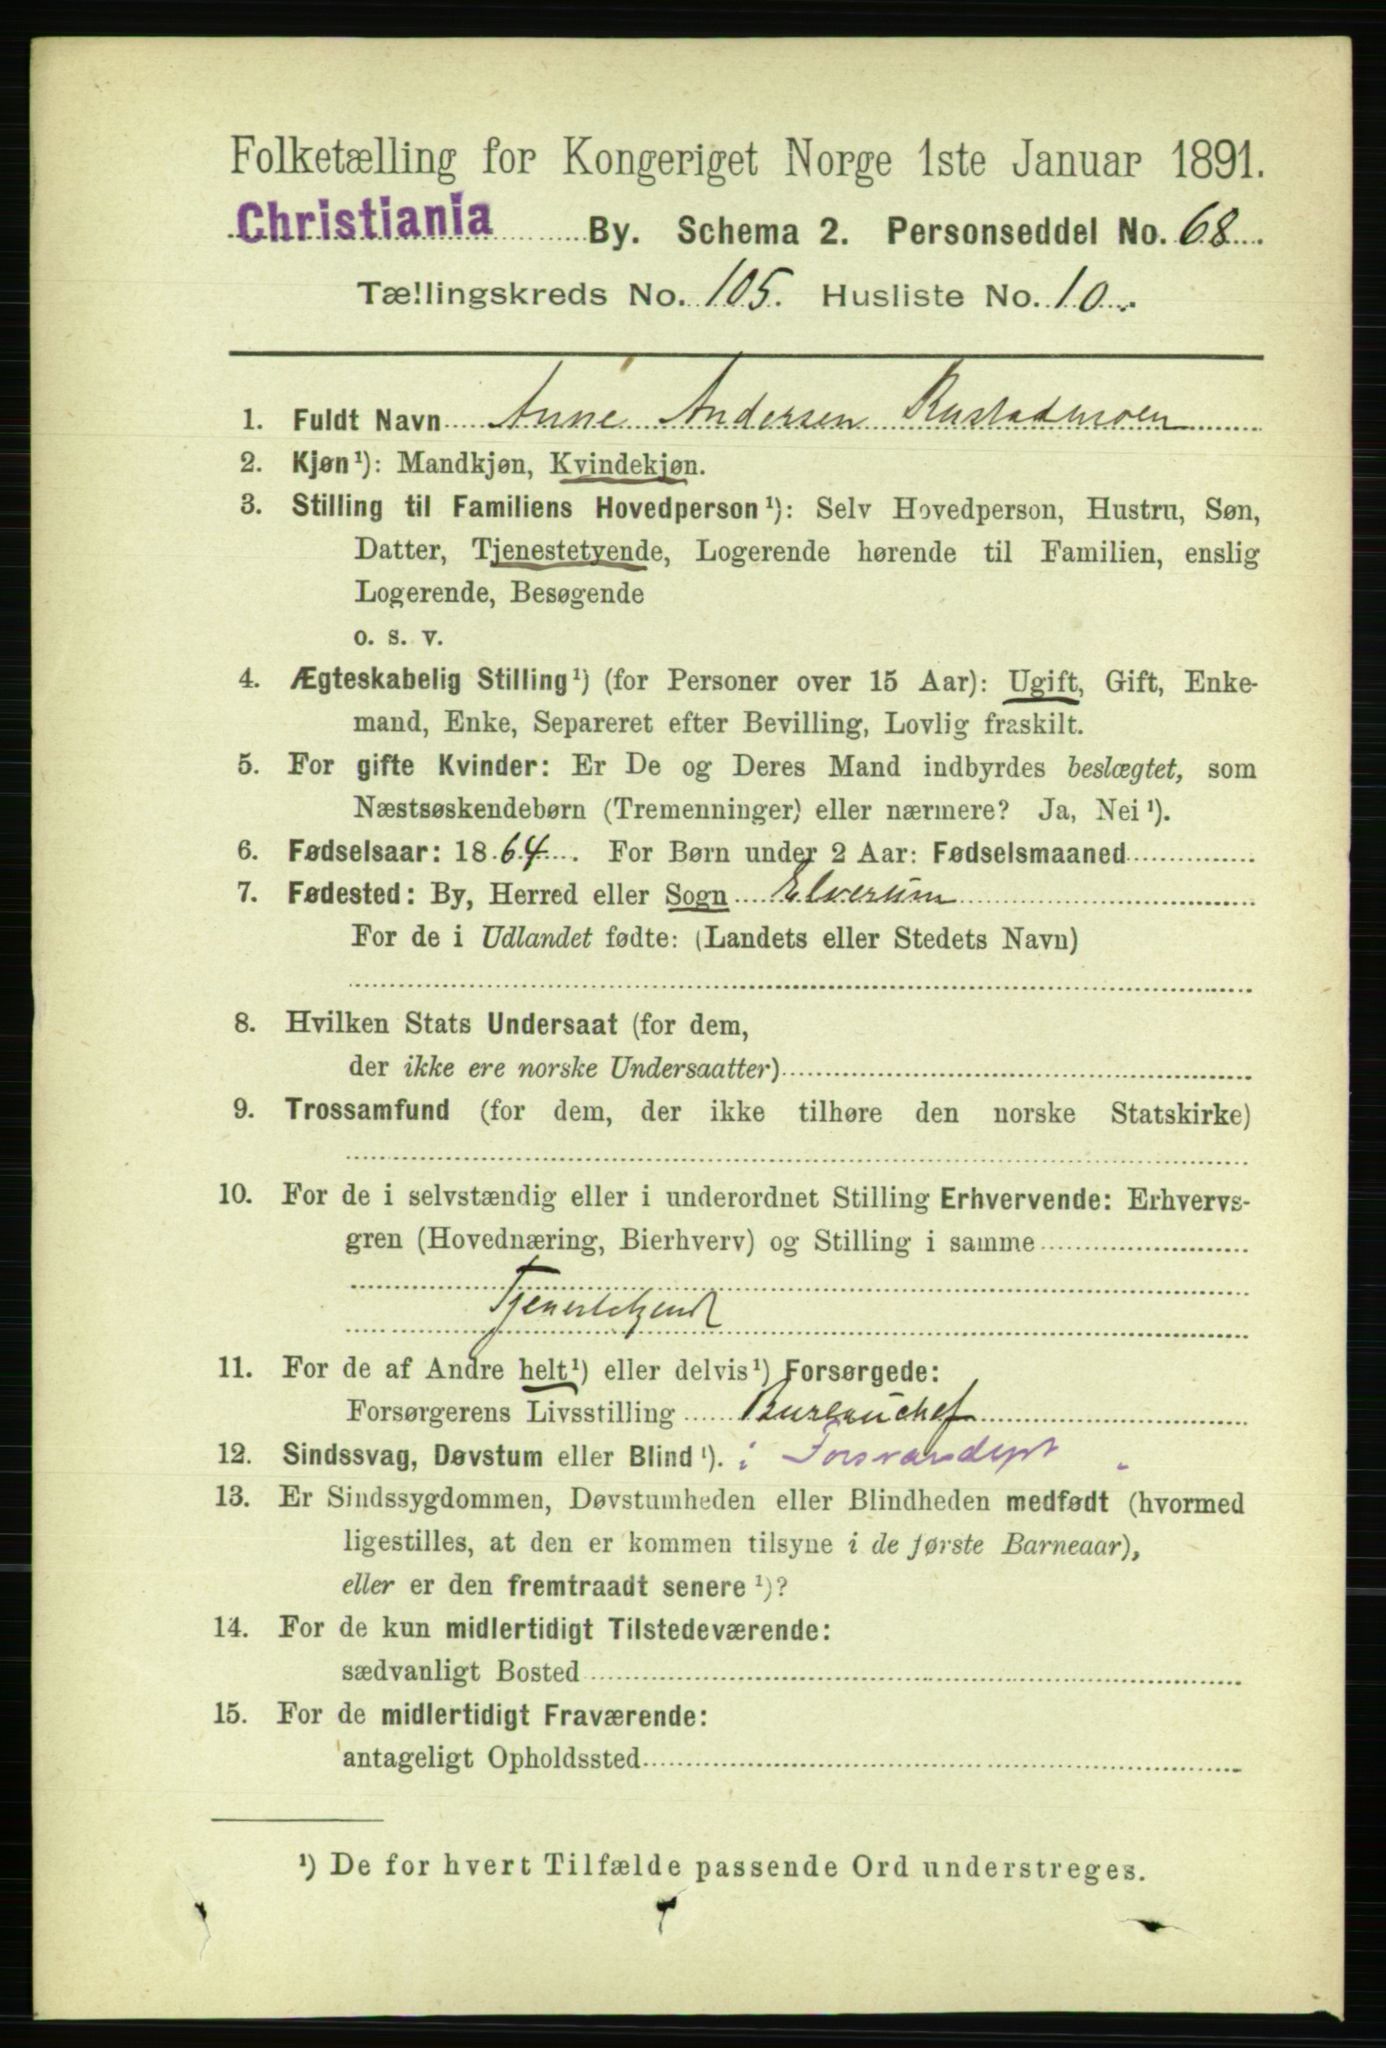 Folketælling for Kongeriget Norge 1ste Januar 1891.
Christiania By. Schema 2. Personseddel No. 68
Tællingskreds No. 105. Husliste No. 10
1. Fuldt Navn Anne Andersen Rustadmoen
2. Kjøn¹): Mandkjøn, Kvindekjøn.
3. Stilling til Familiens Hovedperson¹): Selv Hovedperson, Hustru, Søn,
Datter, Tjenestetyende, Logerende hørende til Familien, enslig
Logerende, Besøgende
o. s. v.
4. Ægteskabelig Stilling¹) (for Personer over 15 Aar): Ugift, Gift, Enke-
mand, Enke, Separeret efter Bevilling, Lovlig fraskilt.
5. For gifte Kvinder: Er De og Deres Mand indbyrdes beslægtet, som
Næstsøskendebørn (Tremenninger) eller nærmere? Ja, Nei¹).
6. Fødselsaar: 1864. For Børn under 2 Aar: Fødselsmaaned
7. Fødested: By, Herred eller Sogn Elverum
For de i Udlandet fødte: (Landets eller Stedets Navn)
8. Hvilken Stats Undersaat (for dem,
der ikke ere norske Undersaatter)
9. Trossamfund (for dem, der ikke tilhøre den norske Statskirke)
10. For de i selvstændig eller i underordnet Stilling Erhvervende: Erhvervs-
gren (Hovednæring, Bierhverv) og Stilling i samme
Tjenestetyende
11. For de af Andre helt¹) eller delvis¹) Forsørgede:
Forsørgerens Livsstilling Bureauchef
12. Sindssvag, Døvstum eller Blind¹). i Forsvarsdept.
13. Er Sindssygdommen, Døvstumheden eller Blindheden medfødt (hvormed
ligestilles, at den er kommen tilsyne i de første Barneaar),
eller er den fremtraadt senere¹)?
14. For de kun midlertidigt Tilstedeværende:
sædvanligt Bosted
15. For de midlertidigt Fraværende:
antageligt Opholdssted
¹) De for hvert Tilfælde passende Ord understreges.